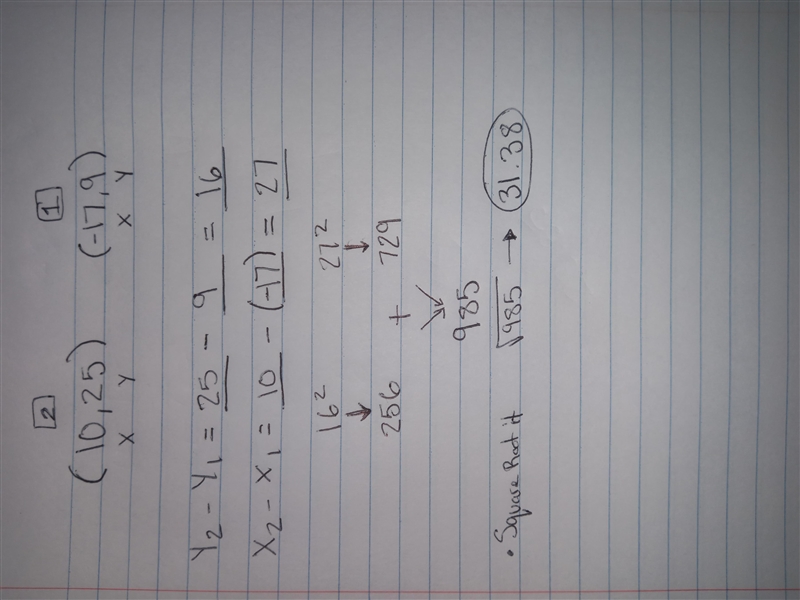 2 1
(10,25) (-17,9)
x y x y
Y₂ - Y₁ = 25 - 9 = 16
X₂ - X₁ = 10 - (-17) = 27
16² 27²
↓ ↓
256 + 729
↘ ↙
985
• Square Root it √985 → 31.38